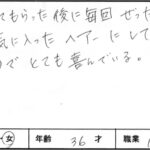 てもらった後に毎回 ぜった
気に入ったヘアーにして
ので とても喜んでいる。
女 年齢 36 才 職業